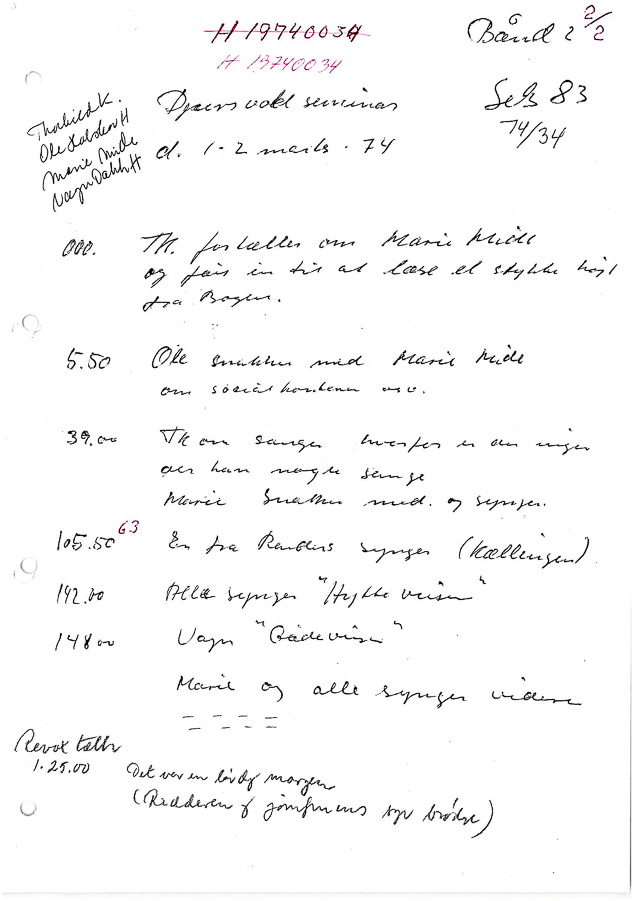 H 19740034
H 13740034
Bånd 2 2/2
Djursvold seminar
d. 1-2 marts. 74
SeB 83
74/34
Thorkild K.
Ole
Marie Mide
Vagn Dahl H
000. Th. fortæller om Marie Mide
og får en til at læse et stykke højt
fra Bogen.
5.50 Ole snakker med Marie Mide
om osv.
39.00 Th om sange hvorfor er der ingen
der kan nogle sange
Marie snakker med. og synger.
105.50 63 En fra Randers synger (Kællingen)
142.00 Alle synger "Hytte visen"
148.00 Vagn "Bådevisen"
Marie og alle synger videre
Revox tæller
1.25.00 Det var en lørdag morgen
(Ridderen & jomfruens syv brødre)